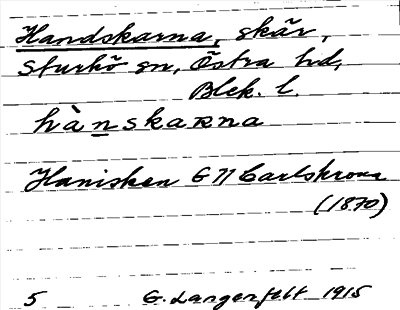 Handskarna, skär,
Sturkö sn, Östra hd,
Blek. l.
hànskaʀna
Hanisken G N Carlskrona
(1870)
5 G. Langenfelt 1915